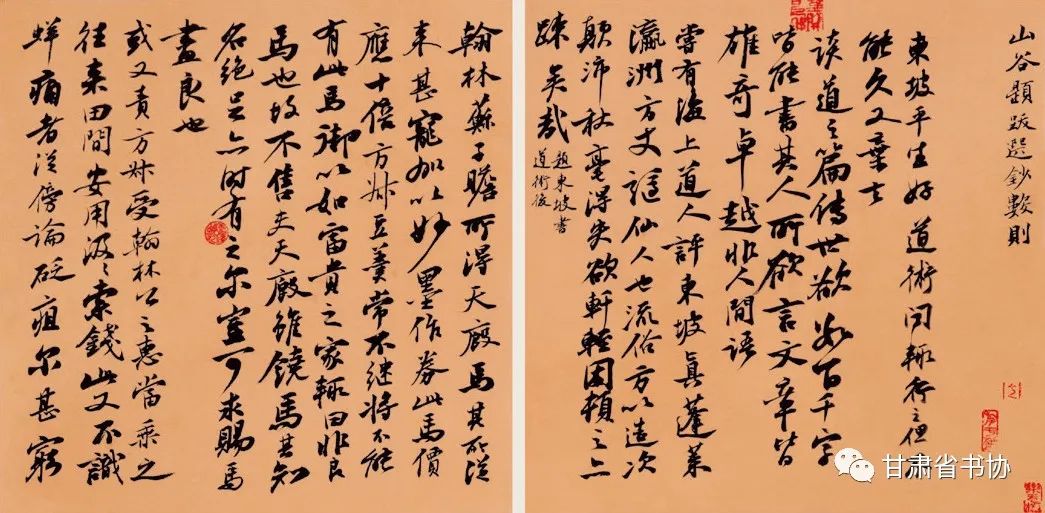 山谷題跋選鈔數則
東坡平生好道術聞輒行之但
能久又棄去
談道之篇傳世欲數百千字
皆能書其人所欲言文章皆
雄奇卓越非人間語
嘗有海上道人評東坡真蓬萊
瀛洲方丈謫仙人也流俗方以造次
顛沛秋毫得失欲軒輊困頓之亦
疎矣哉
題東坡書
道術後
翰林蘇子瞻所得天廄馬其所從
來甚寵加以妙墨作券此馬價
應十倍方叔豆羹常不繼將不能
有此馬御以如富貴之家輒曰非良
馬也故不售夫天廄雖饒馬其知
名絕足亦時有之尔豈可求賜馬
盡良也
或又責方叔受翰林公之惠當乘之
往來田間安用汲〻索錢此又不識
蛘痛者從傍論砭疽尔甚窮
甘肃省书协